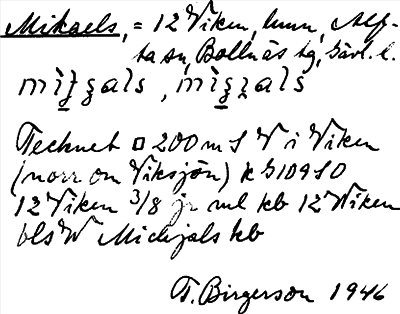 Mikaels, = 12 Viken, hmn, Alf-
ta sn, Bollnäs tg, Gävl. l.
Tecknet □ 200 m S V i Viken
(norr om Viksjön) k G109 SO
12 Viken 3/8 jr ml kb 12 Viken
bls W Michjals kb
T. Birgerson 1946